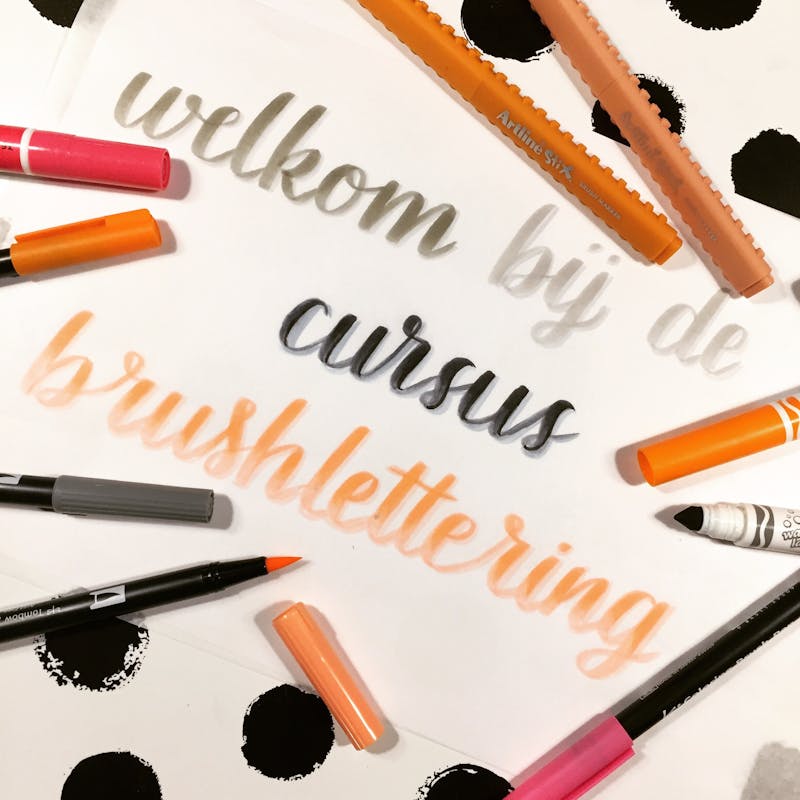 welkom bij de
cursus
brushlettering
Artline Stix
BRUSH MARKER
Tombow